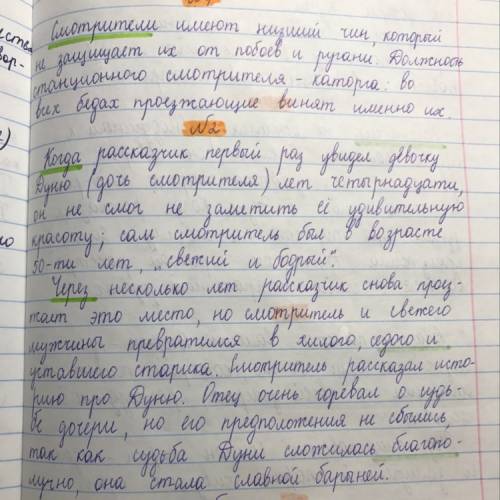 Смотрители имеют низший чин, который
не защищает их от побоев и ругани. Должность
станционного смотрителя - каторга: во
всех бедах проезжающие винят именно их.
№2
Когда рассказчик первый раз увидел девочку
Дуню (дочь смотрителя) лет четырнадцати,
он не смог не заметить её удивительную
красоту; сам смотритель был в возрасте
50-ти лет, "свежий и бодрый".
Через несколько лет рассказчик снова проез-
жает это место, но смотритель и свежего
мужчины превратился в хилого, седого и
уставшего старика. Смотритель рассказал исто-
рию про Дуню. Отец очень горевал о судь-
бе дочери, но его предположения не сбылись,
так как судьба Дуни сложилась благопо-
лучно, она стала славной барыней.